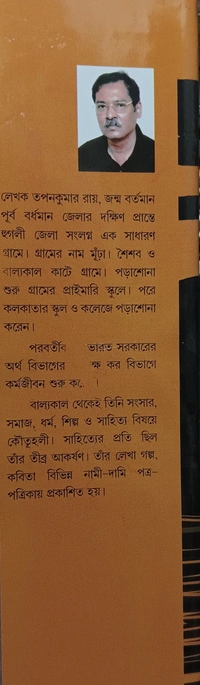 লেখক তপনকুমার রায়, জন্ম বর্তমান
পূর্ব বর্ধমান জেলার দক্ষিণ প্রান্তে
হুগলী জেলা সংলগ্ন এক সাধারণ
গ্রামে। গ্রামের নাম মুঁঢ়া। শৈশব ও
বাল্যকাল কাটে গ্রামে। পড়াশোনা
শুরু গ্রামের প্রাইমারি স্কুলে। পরে
কলকাতার স্কুল ও কলেজে পড়াশোনা
করেন।
ভারত সরকারের
অর্থ বিভাগের ক্ষ কর বিভাগে
কর্মজীবন শুরু
বাল্যকাল থেকেই তিনি সংসার,
সমাজ, ধর্ম, শিল্প ও সাহিত্য বিষয়ে
কৌতূহলী। সাহিত্যের প্রতি ছিল
তাঁর তীব্র আকর্ষণ। তাঁর লেখা গল্প,
কবিতা বিভিন্ন নামী-দামি পত্র-
পত্রিকায় প্রকাশিত হয়।